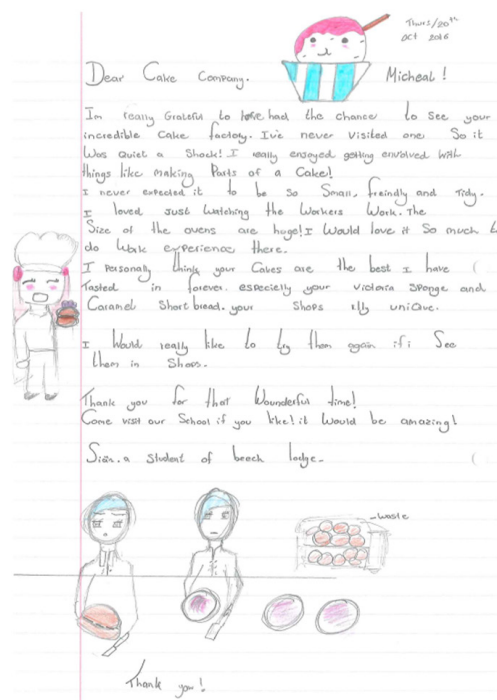 Thurs/20th
Oct 2016
Dear Cake Company. Micheal!
I'm really Grateful to have had the chance to see your
incredible Cake factory. I've never visited one. So it
Was Quiet a Shock! I really enjoyed getting envolved with
things like making Parts of a Cake!
I never expected it to be so Small, freindly and Tidy.
I loved Just Watching the Workers Work. The
Size of the ovens are huge! I Would love it So much to
do Work experience there.
I Personally think your Cakes are the best I have
Tasted in forever. especially your victoria Sponge and
Caramel Short bread. your Shops r unique.
I Would really like to try them again if i See
them in Shops.
Thank you for that Wounderful time!
Come visit our School if you like! it Would be amazing!
Siân. a Student of beech lodge.
-waste
Thank you!